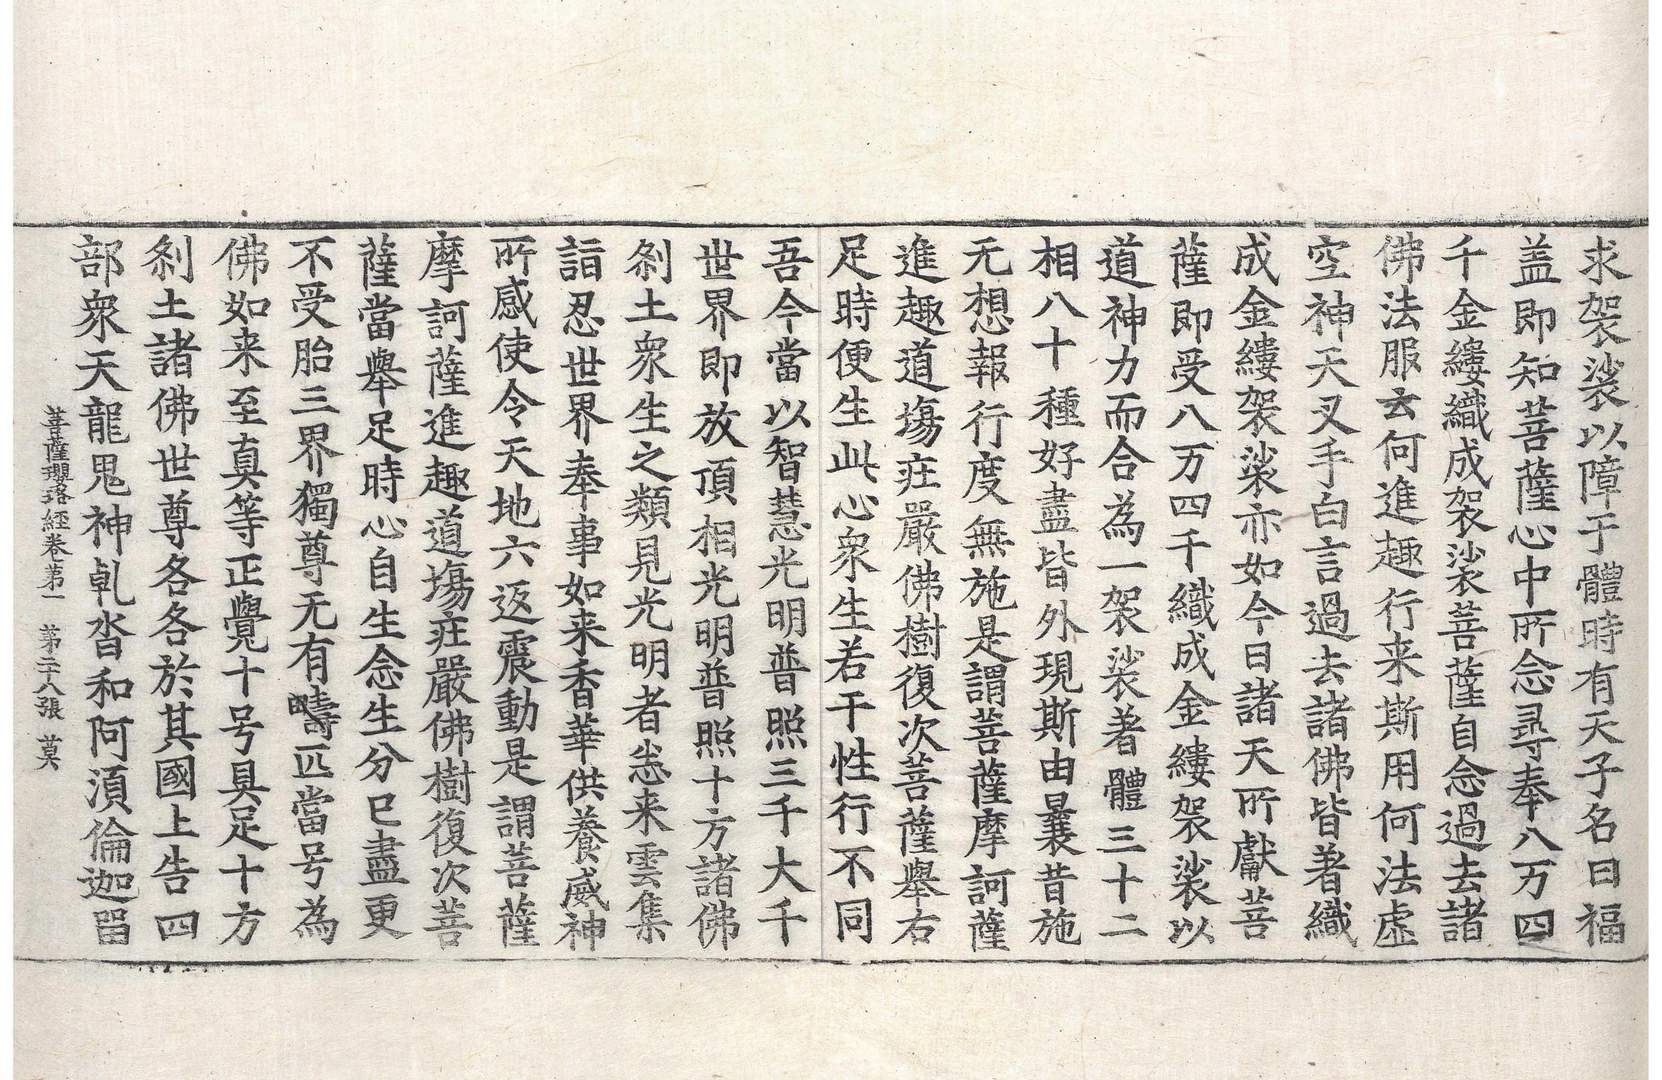 求袈裟以障于體時有天子名曰福
盖即知菩薩心中所念尋奉八万四
千金縷織成袈裟菩薩自念過去諸
佛法服云何進趣行来斯用何法虛
空神天叉手白言過去諸佛皆著織
成金縷袈裟亦如今日諸天所獻菩
薩即受八万四千織成金縷袈裟以
道神力而合為一袈裟著體三十二
相八十種好盡皆外現斯由曩昔施
无想報行度無施是謂菩薩摩訶薩
進趣道場莊嚴佛樹復次菩薩舉右
足時便生此心衆生若干性行不同
吾今當以智慧光明普照三千大千
世界即放頂相光明普照十方諸佛
刹土衆生之類見光明者恙来雲集
詣忍世界奉事如来香華供養威神
所感使令天地六返震動是謂菩薩
摩訶薩進趣道場莊嚴佛樹復次菩
薩當舉足時心自生念生分已盡更
不受胎三界獨尊无有疇匹當号為
佛如来至真等正覺十号具足十方
刹土諸佛世尊各各於其國上告四
部衆天龍鬼神乹沓和阿湏倫迦留
菩薩瓔珞經卷第一　第二十八張　莫